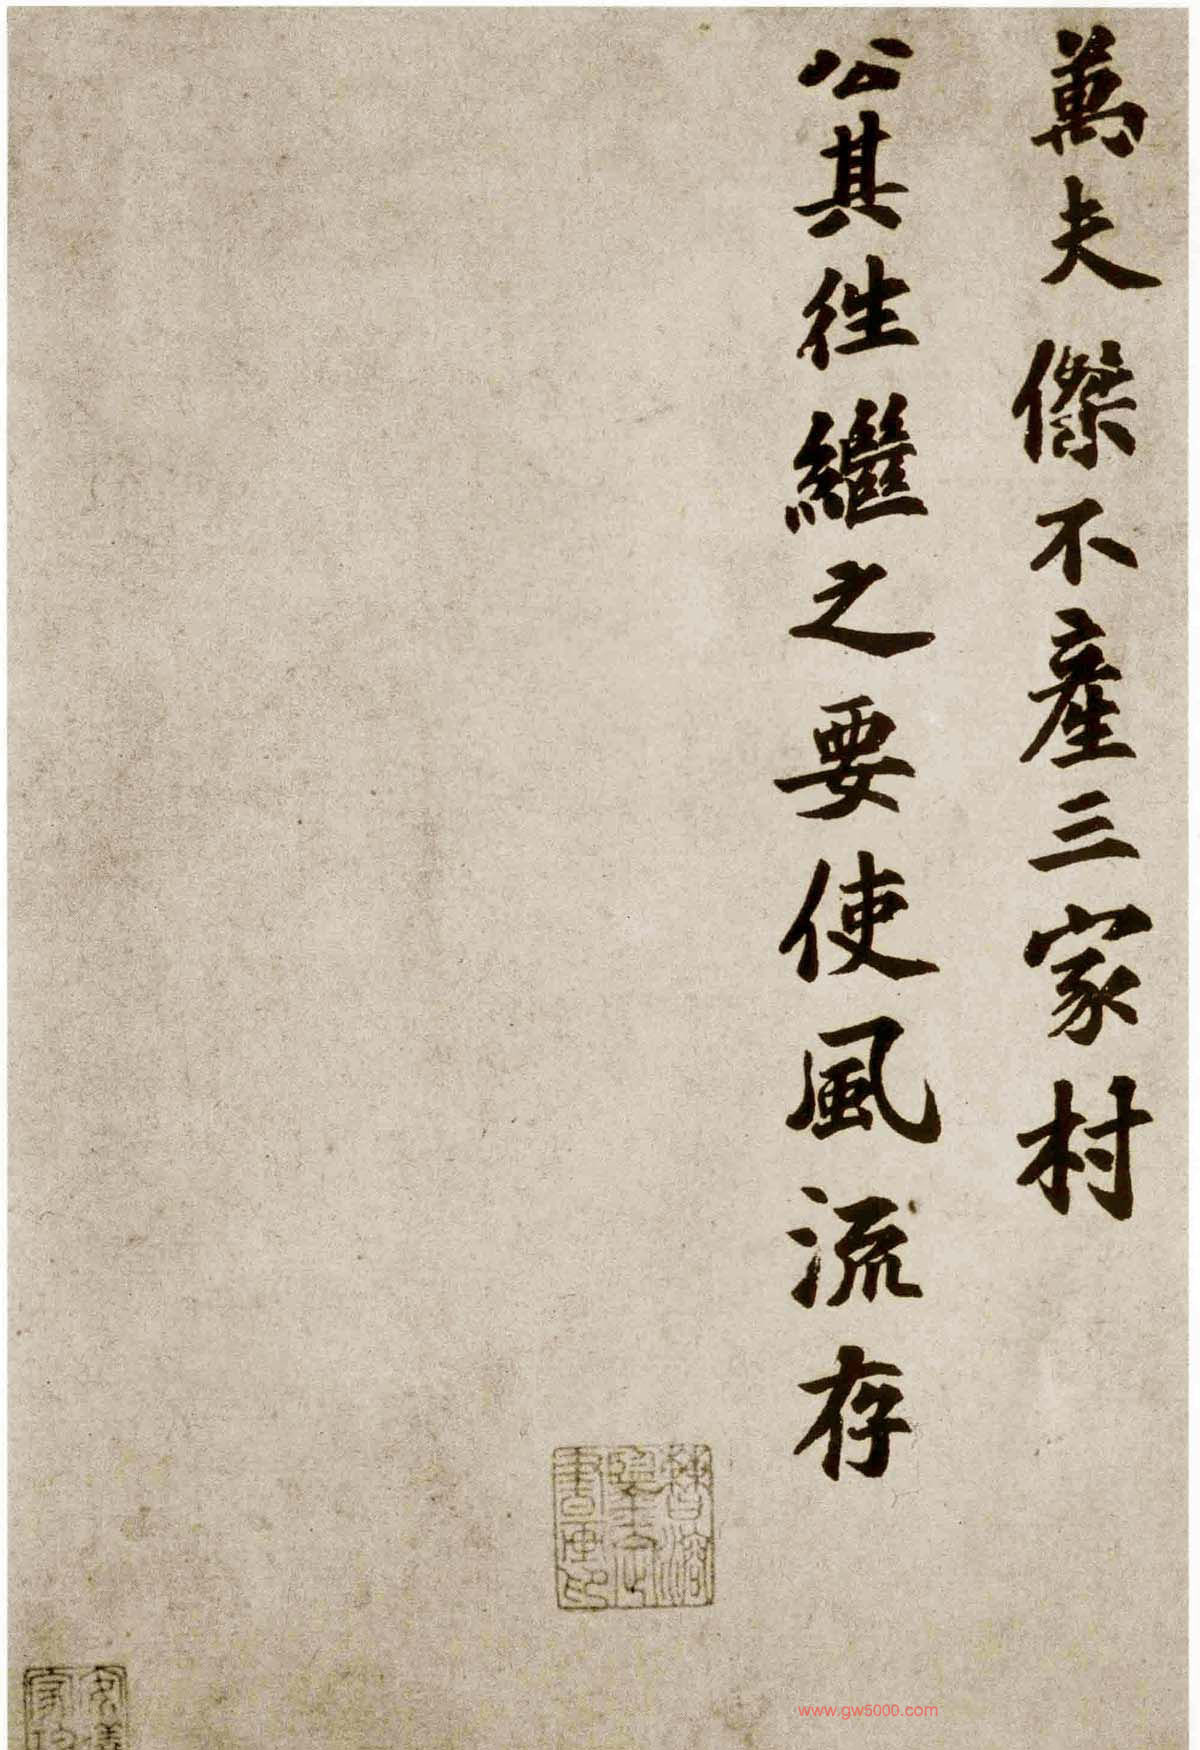 萬夫傑不產三家村
公其往繼之要使風流存
安儀
家珍
www.gw5000.com